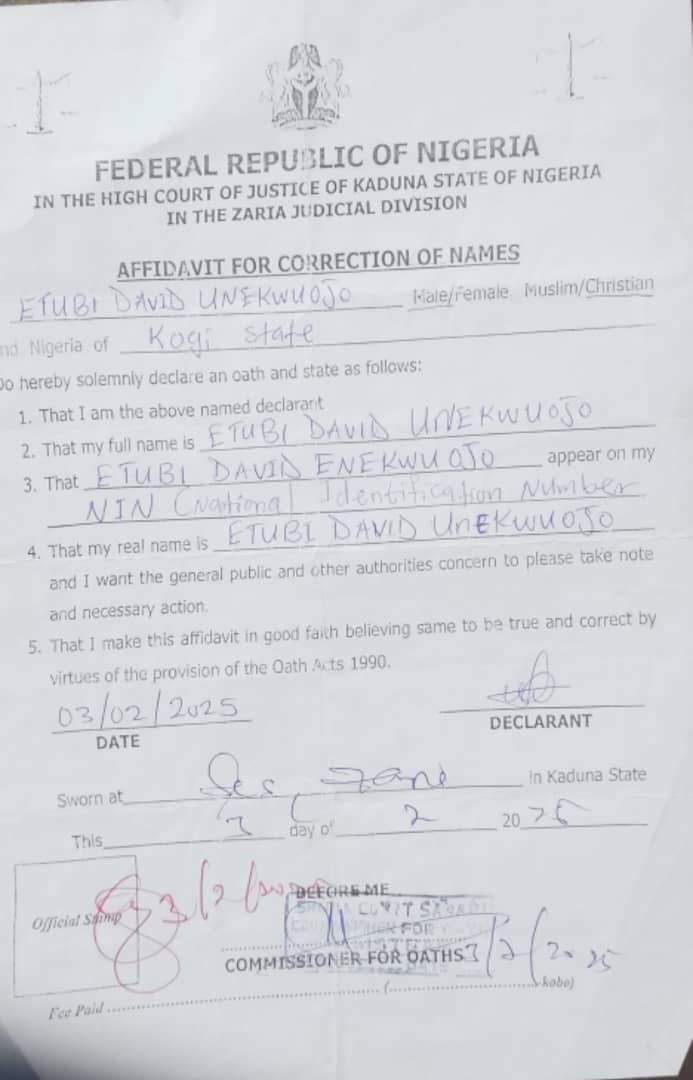 FEDERAL REPUBLIC OF NIGERIA
IN THE HIGH COURT OF JUSTICE OF KADUNA STATE OF NIGERIA
IN THE ZARIA JUDICIAL DIVISION
AFFIDAVIT FOR CORRECTION OF NAMES
ETUBI DAVID UNEKWUOJO Male/Female Muslim/Christian
nd Nigeria of Kogi state
Do hereby solemnly declare an oath and state as follows:
1. That I am the above named declarant
2. That my full name is ETUBI DAVID UNEKWUOJO
3. That ETUBI DAVID ENEKWUOJO appear on my
NIN (National Identification Number
4. That my real name is ETUBI DAVID UnEKWUOJO
and I want the general public and other authorities concern to please take note
and necessary action.
5. That I make this affidavit in good faith believing same to be true and correct by
virtues of the provision of the Oath Acts 1990.
03/02/2025
DATE
DECLARANT
Sworn at in Kaduna State
This 3 day of 2 2025
Official Stamp
3/2/2025
BEFORE ME
COMMISSIONER FOR OATHS 3/2/2025
Fee Paid ( kobo)